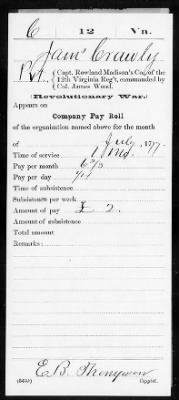 C | 12 | Va.
Jams Crawly
Pvt., { Capt. Rowland Madison's Co., of the
12th Virginia Reg't, commanded by
Col. James Wood.
(Revolutionary War.)
Appears on
Company Pay Roll
of the organization named above for the month
of July, 1777.
Time of service 1 Mo.
Pay per month 6 2/3
Pay per day
Time of subsistence
Subsistence per week
Amount of pay £ 2.
Amount of subsistence
Total amount
Remarks:
E.B. Thompson
Copyist.